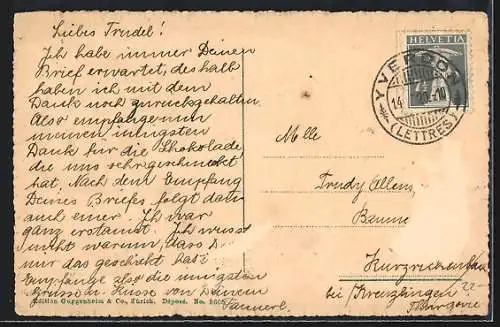 Liebes Trudel!
Ich habe immer Deinen
Brief erwartet, deshalb
haben ich mit dem
Dank noch zurückgehalten
Also empfange nun
meinen innigsten
Dank für die Shokolade
die uns sehr geschmeckt
hat. Nach dem Empfang
Deines Briefes folgt dann
auch einer. Ich war
ganz erstaunt. Ich wusst
nicht warum, dass D
mir das geschickt hast
Empfange also die innigsten
Grüsse u. Küsse von Deinem
Edition Guggenheim & Co., Zürich. Déposé. No.
HELVETIA
YVERDON
(LETTRES)
Mlle
Trudy
bei Kreuzlingen
Thurgovie